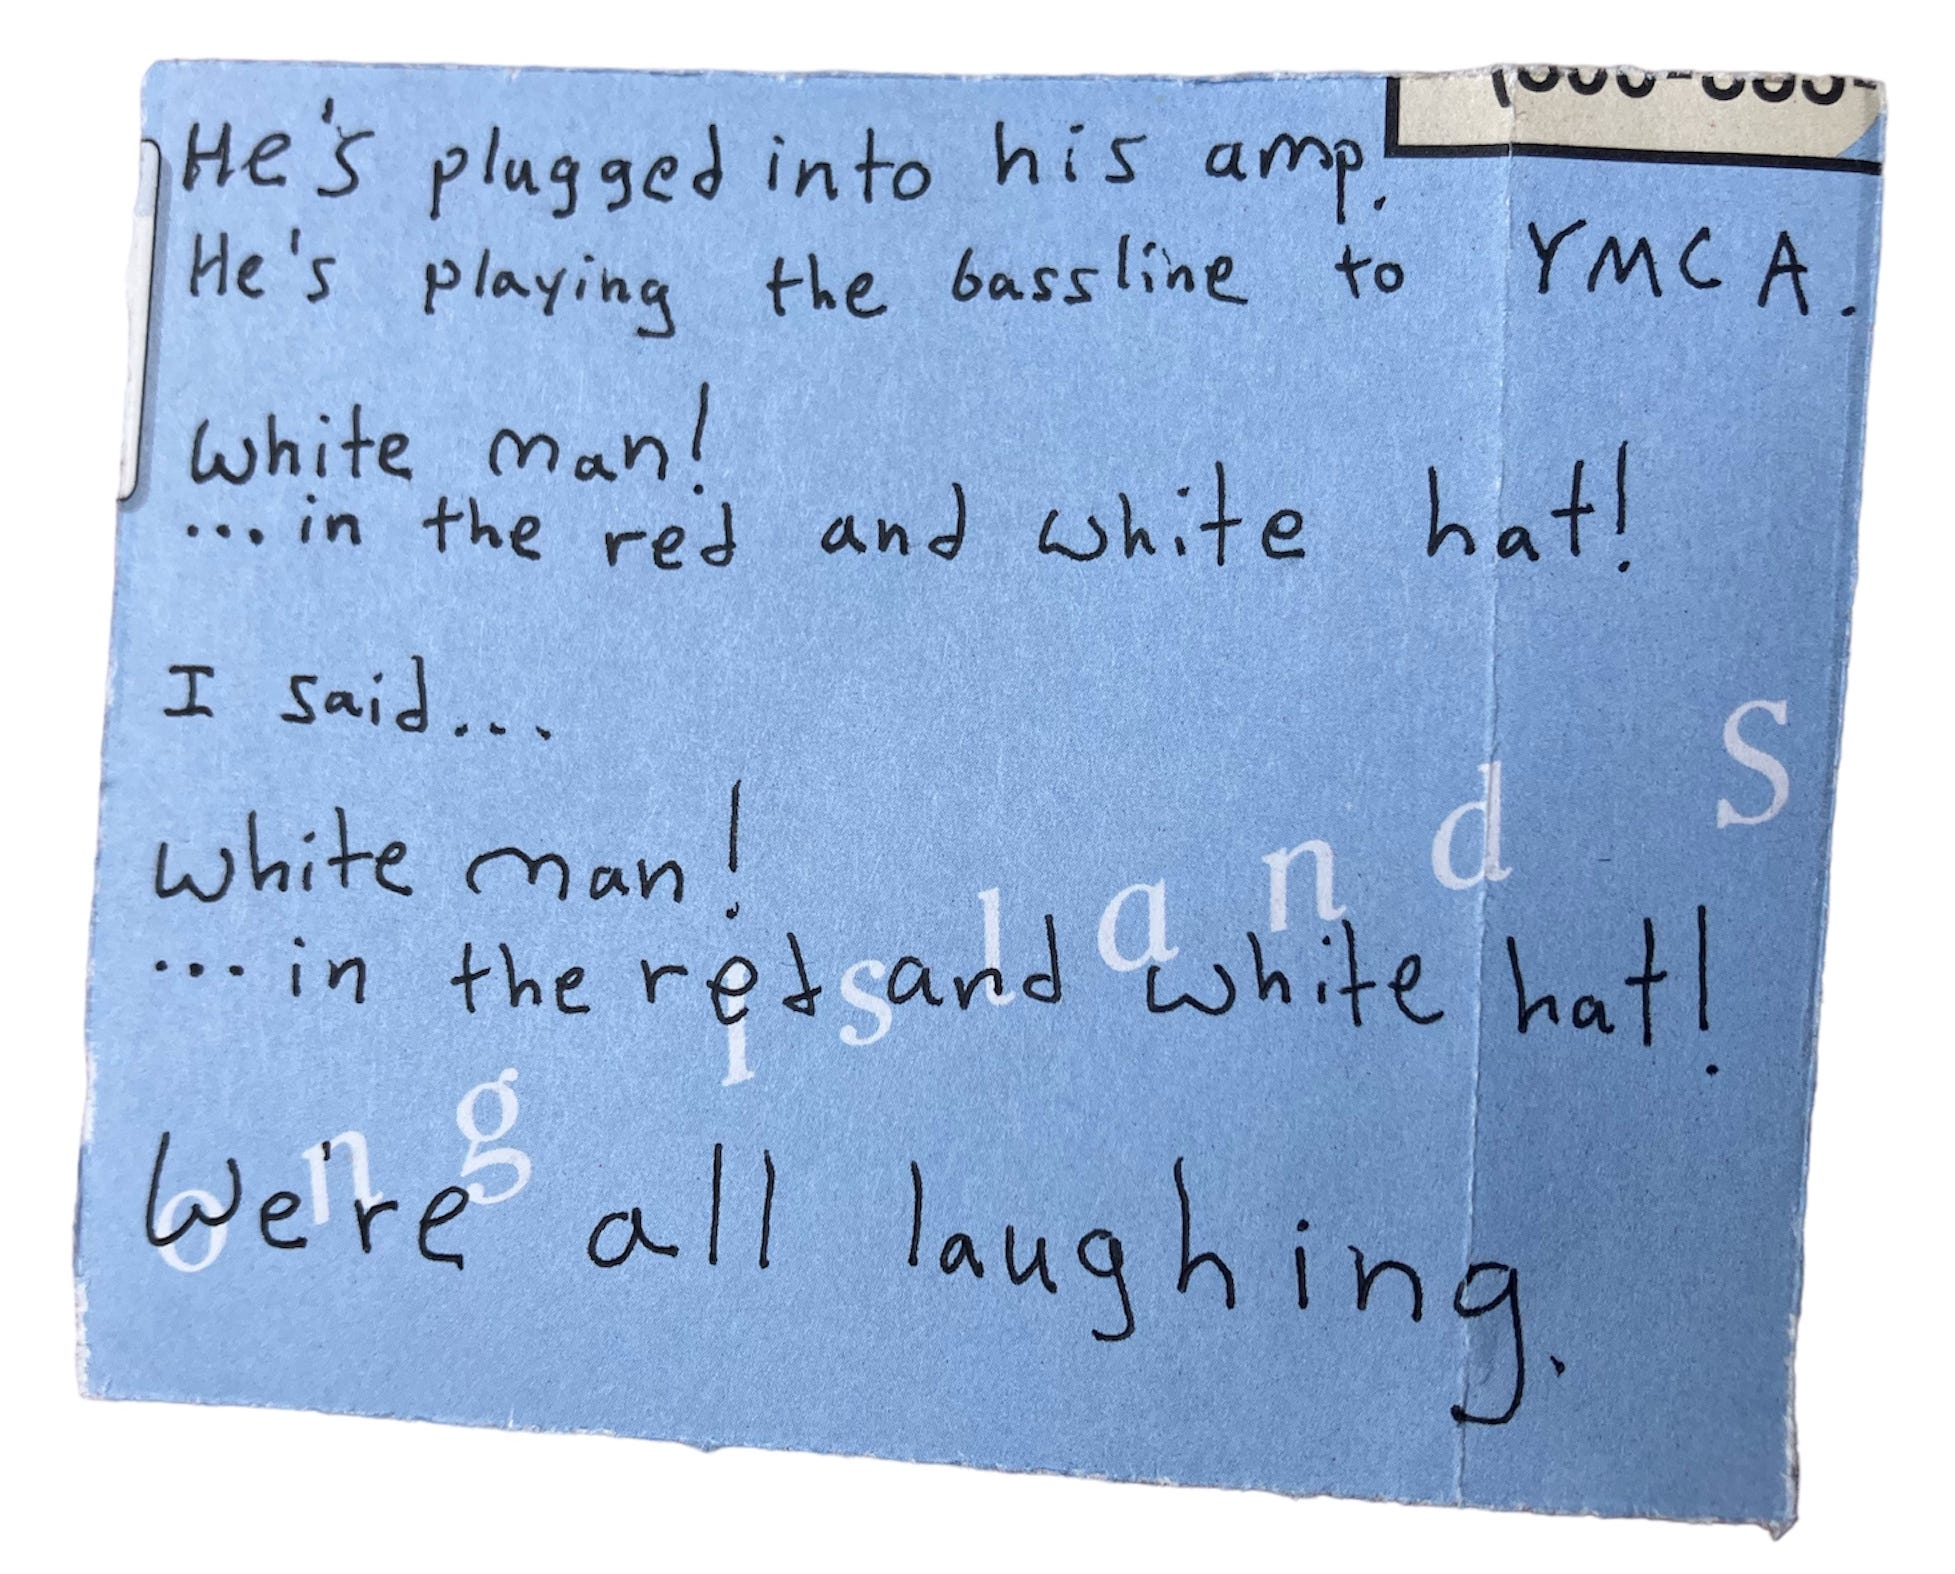 He's plugged into his amp.
He's playing the bassline to YMCA.
White man!
...in the red and white hat!
I said...
White man!
...in the red and white hat!
We're all laughing.
ong islands